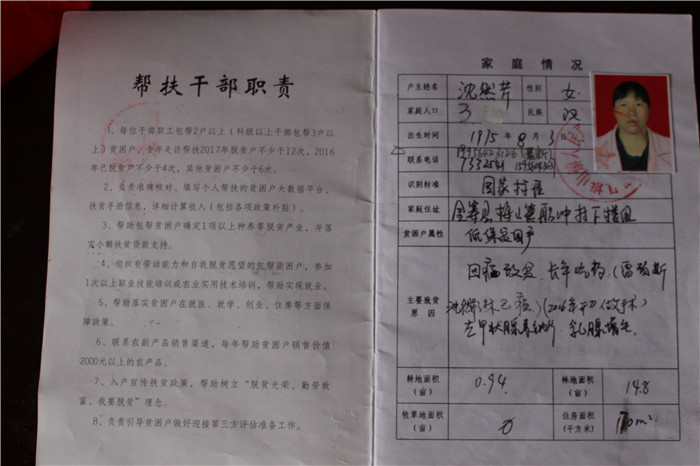 帮扶干部职责
1、每位干部职工包帮2户以上（科级以上干部包帮3户以
上）贫困户，全年走访帮扶2017年脱贫户不少于12次，2016
年已脱贫户不少于4次，其他贫困户不少于6次。
2、负责准确核对、填写个人帮扶的贫困户大数据平台、
扶贫手册信息，详细计算收入（包括各项政策补贴）。
3、帮助包帮贫困户确定1项以上种养等脱贫产业，并落
实小额扶贫贷款支持。
4、组织有劳动能力和自我脱贫愿望的包帮贫困户，参加
1次以上职业技能培训或农业实用技术培训，帮助实现就业。
5、帮助落实贫困户在就医、就学、创业、住房等方面保
障政策。
6、联系农副产品销售渠道，每年帮助贫困户销售价值
2000元以上的农产品。
7、入户宣传扶贫政策，帮助树立“脱贫光荣、勤劳致
富、我要脱贫”理念。
8、负责引导贫困户做好迎接第三方评估准备工作。
家庭情况
户主姓名 沈然芳 性别 女
家庭人口 3 民族 汉
出生时间 1975年8月3日
联系电话
7332521
识别标准 国家标准
家庭住址
贫困户属性 低保贫困户
主要致贫
原因
因病致贫 长年吃药
耕地面积
（亩） 0.94 林地面积
（亩） 14.8
牧草地面积
（亩） 0 住房面积
（平方米）